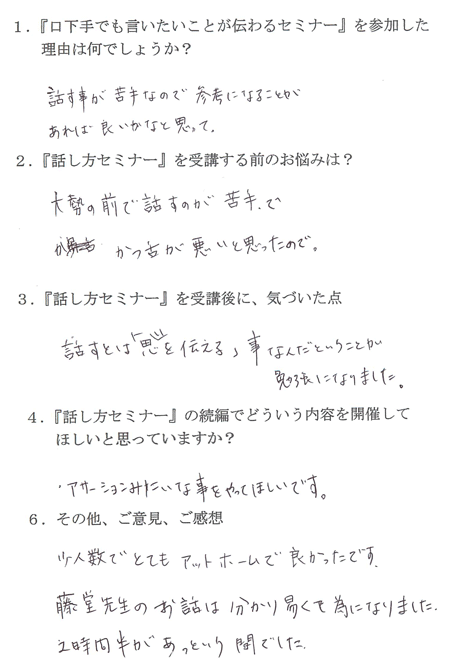 1．『口下手でも言いたいことが伝わるセミナー』を参加した
理由は何でしょうか？
話す事が苦手なので参考になることが
あれば良いかなと思って。
2．『話し方セミナー』を受講する前のお悩みは？
大勢の前で話すのが苦手で
かつ舌が悪いと思ったので。
3．『話し方セミナー』を受講後に、気づいた点
話すとは「思いを伝える」事なんだということが
勉強になりました。
4．『話し方セミナー』の続編でどういう内容を開催して
ほしいと思っていますか？
・アサーションみたいな事をやってほしいです。
6．その他、ご意見、ご感想
少人数でとてもアットホームで良かったです。
藤堂先生のお話は分かり易くて為になりました。
2時間半があっという間でした。